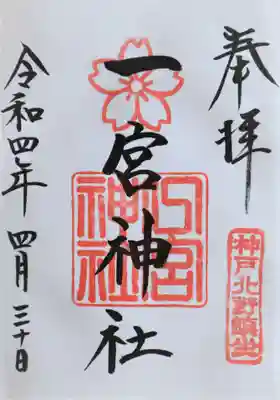 奉拝
神戸北野鎮座
一宮神社
一宮神社
令和四年 四月三十日